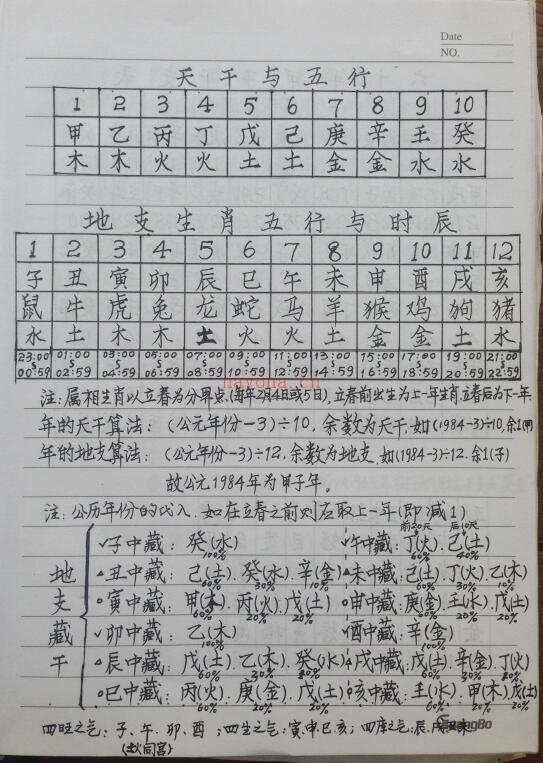 Date
NO.
天干与五行
1 2 3 4 5 6 7 8 9 10
甲 乙 丙 丁 戊 己 庚 辛 王 癸
木 木 火 火 土 土 金 金 水 水
地支生肖五行与时辰
1 2 3 4 5 6 7 8 9 10 11 12
子 丑 寅 卯 辰 巳 午 未 申 酉 戌 亥
鼠 牛 虎 兔 龙 蛇 马 羊 猴 鸡 狗 猪
水 土 木 木 土 火 火 土 金 金 土 水
23:00 01:00 03:00 05:00 07:00 09:00 11:00 13:00 15:00 17:00 19:00 21:00
00:59 02:59 04:59 06:59 08:59 10:59 12:59 14:59 16:59 18:59 20:59 22:59
nayona.cn
注:属相生肖以立春为分界点(每年2月4日或5日),立春前出生为上一年生肖,立春后为下一年.
年的天干算法:(公元年份-3)÷10,余数为天干,如(1984-3)÷10,余1(甲)
年的地支算法:(公元年份-3)÷12,余数为地支,如(1984-3)÷12.余1(子)
故公元1984年为甲子年。
注:公历年份的代入,如在立春之前则后取上一年(即减1)
前20天 后10天
地支藏干
✓子中藏:癸(水) 100% ✓午中藏:丁(火) 60% 己(土) 40%
△丑中藏:己(土) 60% 癸(水) 30% 辛(金) 10% △未中藏:己(土) 60% 丁(火) 30% 乙(木) 10%
○寅中藏:甲(木) 60% 丙(火) 20% 戊(土) 20% ○申中藏:庚(金) 60% 壬(水) 20% 戊(土) 20%
✓卯中藏:乙(木) 100% ✓酉中藏:辛(金) 100%
△辰中藏:戊(土) 60% 乙(木) 30% 癸(水) △戌中藏:戊(土) 60% 辛(金) 30% 丁(火)
○巳中藏:丙(火) 60% 庚(金) 20% 戊(土) 20% ○亥中藏:壬(水) 60% 甲(木) 20% 戊(土) 20%
四旺之气:子、午、卯、酉;四生之气:寅.申.巳.亥;四库之气:辰.戌.丑.未